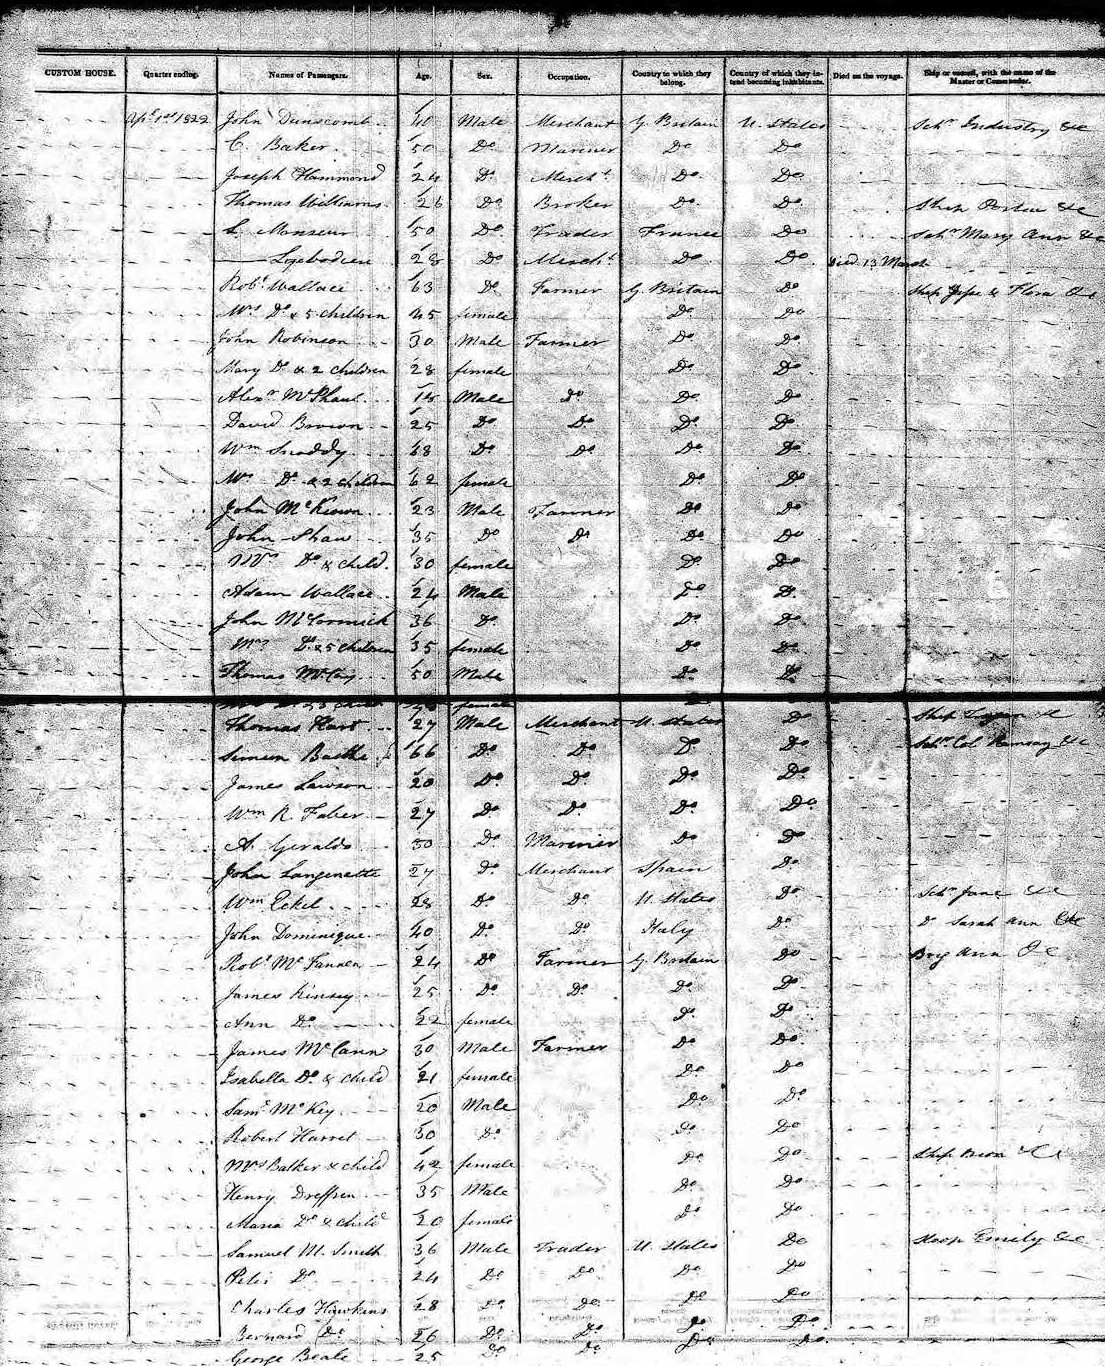 CUSTOM HOUSE. Quarter ending. Names of Passengers. Age. Sex. Occupation. Country to which they belong. Country of which they intend becoming inhabitants. Died on the voyage. Ship or vessel, with the name of the Master or Commander.
Apl 1st 1822 John Dunscomb 40 Male Merchant G Britain U. States Schr Industry &c
C. Baker 50 Do Mariner Do Do
Joseph Hammond 24 Do Mercht Do Do
Thomas Williams 26 Do Broker Do Do Ship &c
L. Monseur 50 Do Trader France Do Schr Mary Ann &c
28 Do Mercht Do Do Died 13 March
Robt Wallace 63 Do Farmer G. Britain Do Ship & Flora &c
Mrs Do & 5 children 45 female Do Do
John Robinson 30 Male Farmer Do Do
Mary Do & 2 children 28 female Do Do
Alexr 18 Male Do Do Do
David Brown 25 Do Do Do Do
Wm Snoddy 48 Do Do Do Do
Mrs Do & 2 children 62 female Do Do
John McKeown 23 Male Farmer Do Do
John Shaw 35 Do Do Do Do
Mrs Do & child 30 female Do Do
Adam Wallace 24 Male Do Do
John McCormick 36 Do Do Do
Mrs Do & 5 children 35 female Do Do
Thomas McCoy 50 Male Do Do
female
Thomas Hart 27 Male Merchant U. States Do Ship &c
Simeon 66 Do Do Do Do Schr Col Ramsay &c
James Lawson 20 Do Do Do Do
Wm R. Faber 27 Do Do Do Do
A. Geralds 30 Do Mariner Do Do
John Langenette 27 Do Merchant Spain Do
Wm Eckel 28 Do Do U. States Do Schr Jane &c
John Dominique 40 Do Do Italy Do Do Sarah Ann &c
Robt McFannen 24 Do Farmer G. Britain Do Brig Ann &c
James Kinsey 25 Do Do Do Do
Ann Do 22 female Do Do
James McCann 30 Male Farmer Do Do
Isabella Do & child 21 female Do Do
Saml McKey 20 Male Do Do
Robert Harret 30 Do Do Do
Mrs Balker & child 42 female Do Do Ship &c
Henry Dreffsen 35 Male Do Do
Maria Do & child 20 female Do Do
Samuel M. Smith 36 Male Trader U. States Do Sloop Emily &c
Do 24 Do Do Do Do
Charles Hawkins 28 Do Do Do Do
Bernard Do 26 Do Do Do Do
George Beale 25 Do Do Do Do